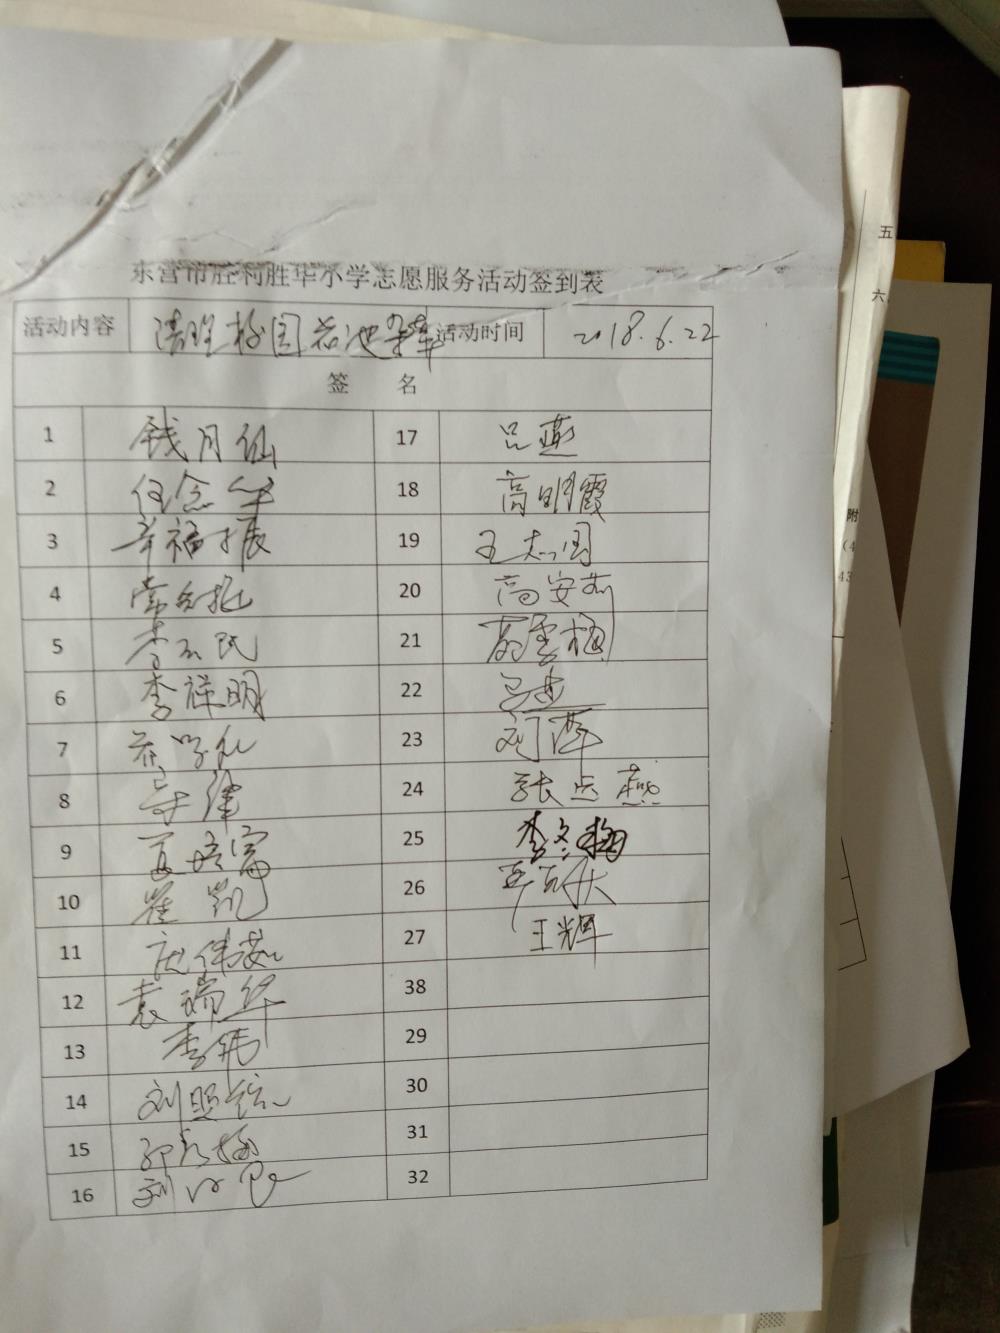 东营市胜利胜华小学志愿服务活动签到表
活动内容 清理校园花池杂草 活动时间 2018.6.22
签 名
1 钱月仙 17 吕燕
2 任念华 18 高明霞
3 辛福振 19 王志国
4 20 高安莉
5 李玉民 21 雪梅
6 李祥明 22
7 23 刘萍
8 24 张志燕
9 夏培富 25 李冬梅
10 崔凯 26
11 庞伟茹 27 王辉
12 袁瑞华 38
13 李伟 29
14 刘照 30
15 31
16 刘 32
五
六、
附
(4
43